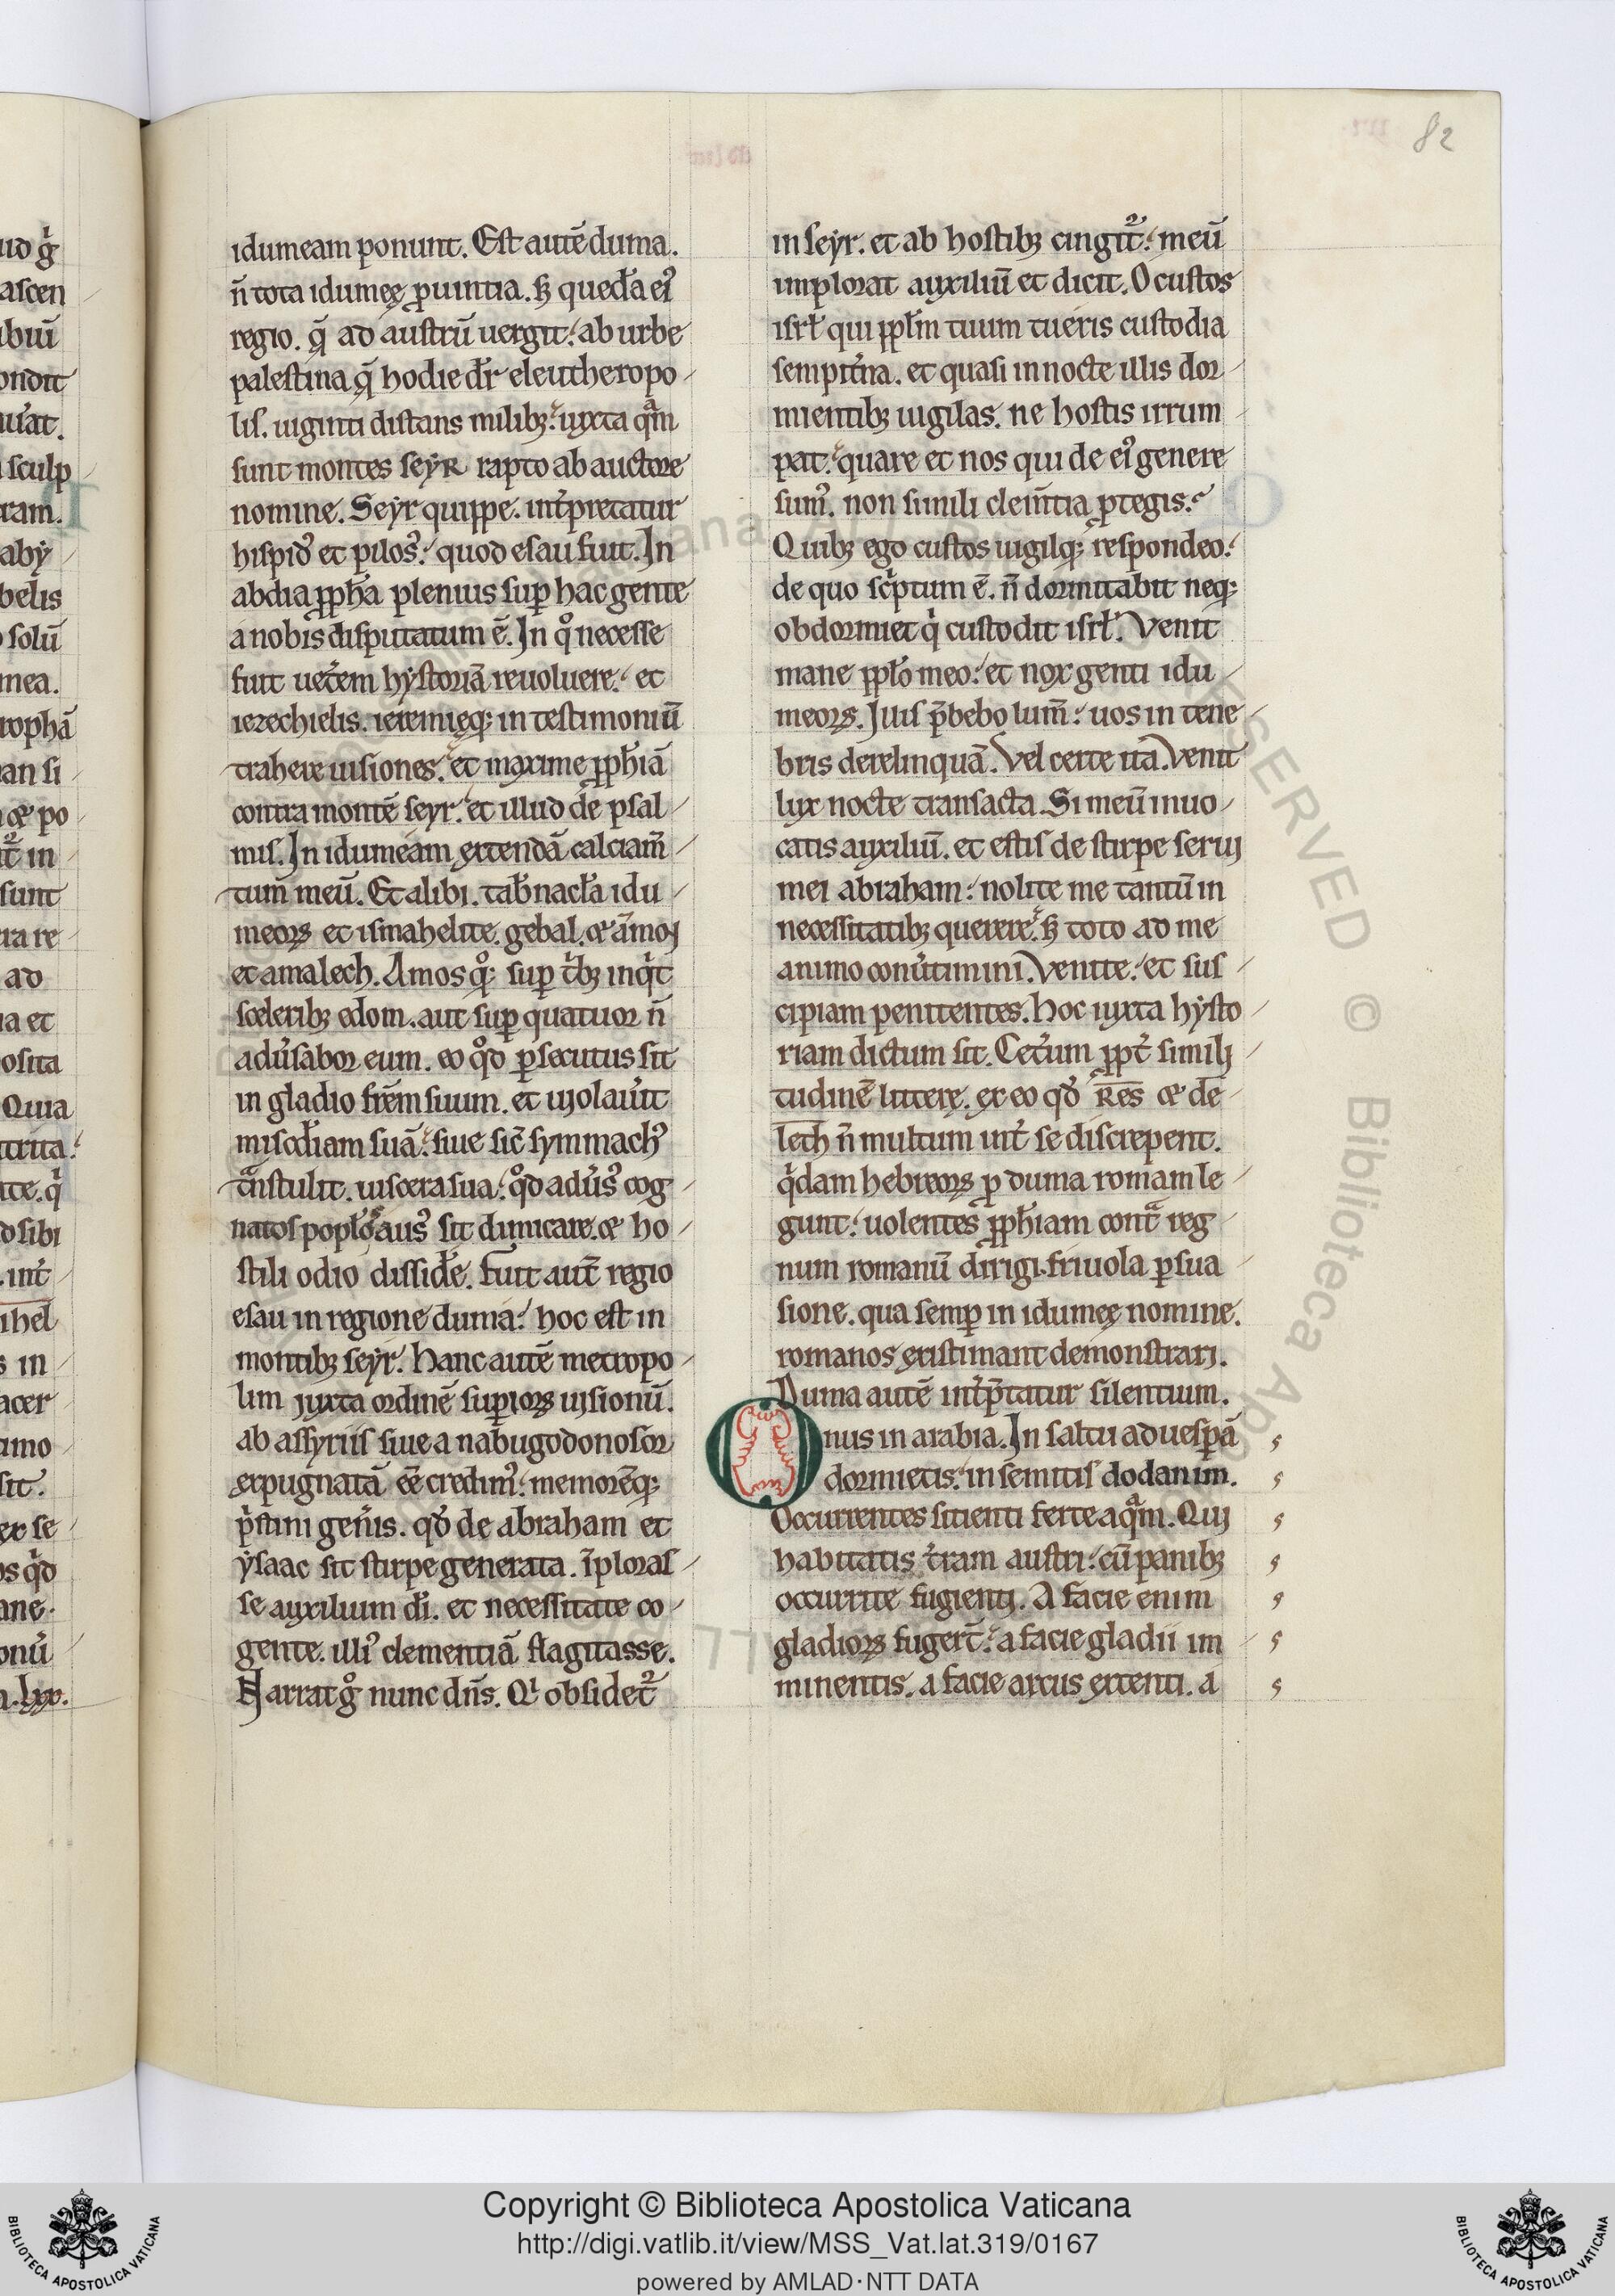 82
idumeam ponunt. Est autē duma.
n̄ tota idumeę ꝓuintia. ꝫ quedā ei᾽
regio. q̄ ad austrū uergit. ab urbe
palestina q̄ hodie dr̄ eleutheropo
lis. uiginti distans milibꝫ. iuxta qᵃm
sunt montes seyr rapto ab auctore
nomine. Seyr quippe. int̄pretatur
hispid᾽ et pilos᾽. quod esau fuit. In
abdia ꝓph̄a plenius suꝑ hac gente
a nobis disputatum ē. In qͦ necesse
fuit uet̄em hystoriā reuoluere. et
iezechielis. ieremięqꝫ in testimoniū
trahere uisiones. et maxime ꝓph̄iā
contra montē seyr. et illud de psal
mis. In idumeam extendā calciam̄
tum meū. Et alibi. tab̄nacl̄a idu
meoꝝ et ismahelite. gebal. et āmon
et amalech. Amos qͦqꝫ suꝑ t̄bꝫ inqͥt
sceleribꝫ edom. aut suꝑ quatuor n̄
adūsabor eum. eo qͦd ꝑsecutus sit
in gladio fr̄em suum. et uiolau̅it
misc̄diam suā. siue sic̄ symmach᾽
tᵃnstulit. uiscera sua. qͦd adūs᾽ cog
natos popl̄os aus᾽ sit dimicare. et ho
stili odio dissidē. Fuit aut̄ regio
esau in regione duma. hoc est in
montibꝫ seyr. Hanc autē metropo
lim iuxta ordinē suꝑioꝝ uisionū.
ab assyriis siue a nabugodonosor
expugnatā eē credim᾽. memorēqꝫ
pͥstini gen̄is. qd̄ de abraham et
ysaac sit stirpe generata. īploras
se auxilium dī. et necessitate co
gente. illi᾽ clementiā flagitasse.
Narrat gͦ nunc dn̄s. Qi obsidet᾽
in seyr. et ab hostibꝫ cingit᾽. meū
implorat auxiliū et dicit. O custos
isrl̄ qui ppl̄m tuum tueris custodia
sempit̄na. et quasi in nocte illis dor
mientibꝫ uigilas. ne hostis irrum
pat. quare et nos qui de ei᾽ genere
sum᾽. non simili clem̄tia ꝓtegis.
Quibꝫ ego custos uigilqꝫ respondeo.
de quo scͥptum ē. n̄ dormitabit neqꝫ
obdormiet qͥ custodit isrl̄. Venit
mane ppl̄o meo. et nox genti idu
meoꝝ. Illis p̄bebo lum̄. uos in tene
bris derelinquā. Vel certe ita. Venit
lux nocte transacta. Si meū inuo
catis auxiliū. et estis de stirpe serui
mei abraham. nolite me tantū in
necessitatibꝫ querere. ꝫ toto ad me
animo conūtimini. Venite. et sus
cipiam penitentes. Hoc iuxta hysto
riam dictum sit. Cet̄um ꝓpt̄ simili
tudinē litterę. ex eo qd̄ R̄ES̄ et dē
lēth n̄ multum int̄ se discrepent.
qͥdam hebreoꝝ ꝑ duma romam le
gunt. uolentes ꝓph̄iam contᵃ reg
num romanū dirigi. friuola ꝑsua
sione. qua semꝑ in idumeę nomine.
romanos existimant demonstrari.
Duma autē int̄p̄tatur silentium.
Onus in arabia. In saltu ad uesꝑā
dormietis. in semitis dodanim.
Occurrentes sitienti ferte aqᵃm. Qui
habitatis t̄ram austri. cū panibꝫ
occurrite fugienti. A facie enim
gladioꝝ fuger̄t. a facie gladii im
minentis. a facie arcus extenti. a
Copyright © Biblioteca Apostolica Vaticana
http://digi.vatlib.it/view/MSS_Vat.lat.319/0167
powered by AMLAD·NTT DATA